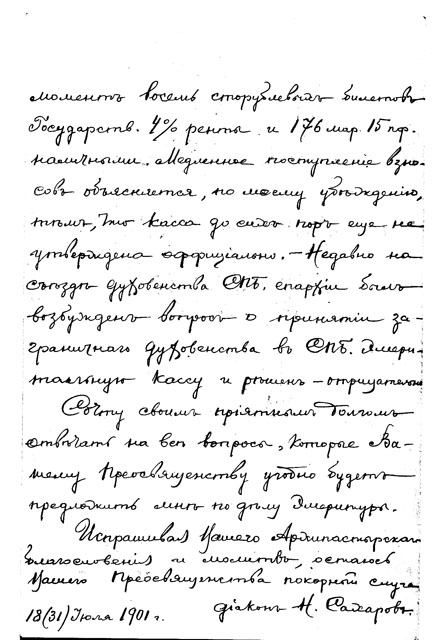 моментъ восемь сторублевыхъ билетовъ
Государств. 4% ренты и 176 мар. 15 пф.
наличными. Медленное поступленіе взно-
совъ объясняется, по моему убѣжденію,
тѣмъ, что касса до сихъ поръ еще не
утверждена оффиціально. – Недавно на
съѣздѣ духовенства СПБ. епархіи былъ
возбужденъ вопросъ о принятіи за-
граничнаго духовенства въ СПБ. Эмери-
тальную кассу и рѣшенъ – отрицательно.
Сочту своимъ пріятнымъ долгомъ
отвѣчать на всѣ вопросы, которые Ва-
шему Преосвященству угодно будетъ
предложить мнѣ по дѣлу Эмеритуры.
Испрашивая Вашего Архипастырскаго
благословенія и молитвъ, остаюсь
Вашего Преосвященства покорный слуга
діаконъ Н. Сахаровъ.
18(31) Іюля 1901 г.